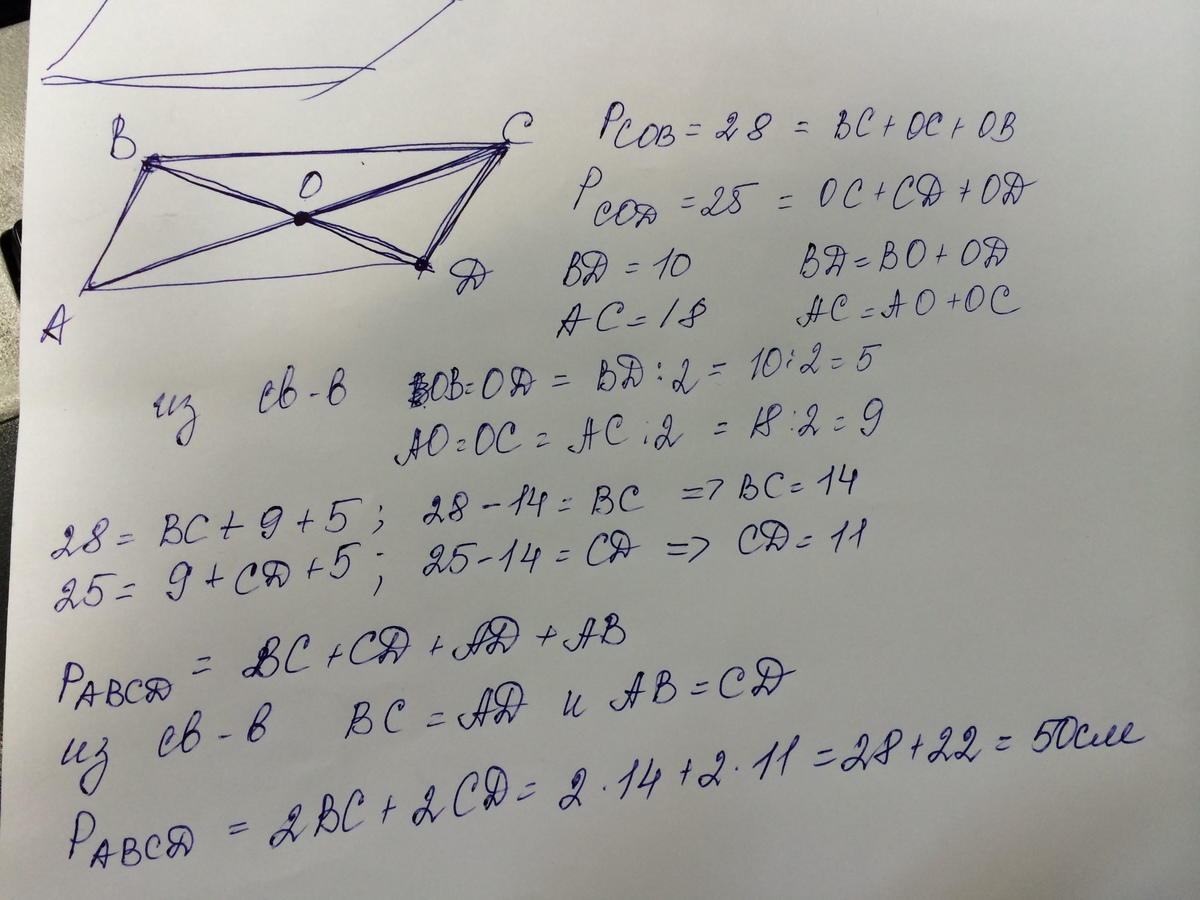 B
C
O
A
D
P COB = 28 = BC + OC + OB
P COD = 25 = OC + CD + OD
BD = 10 BD = BO + OD
AC = 18 AC = AO + OC
из св-в OB = OD = BD : 2 = 10 : 2 = 5
AO = OC = AC : 2 = 18 : 2 = 9
28 = BC + 9 + 5 ; 28 - 14 = BC => BC = 14
25 = 9 + CD + 5 ; 25 - 14 = CD => CD = 11
P ABCD = BC + CD + AD + AB
из св-в BC = AD и AB = CD
P ABCD = 2BC + 2CD = 2 · 14 + 2 · 11 = 28 + 22 = 50см